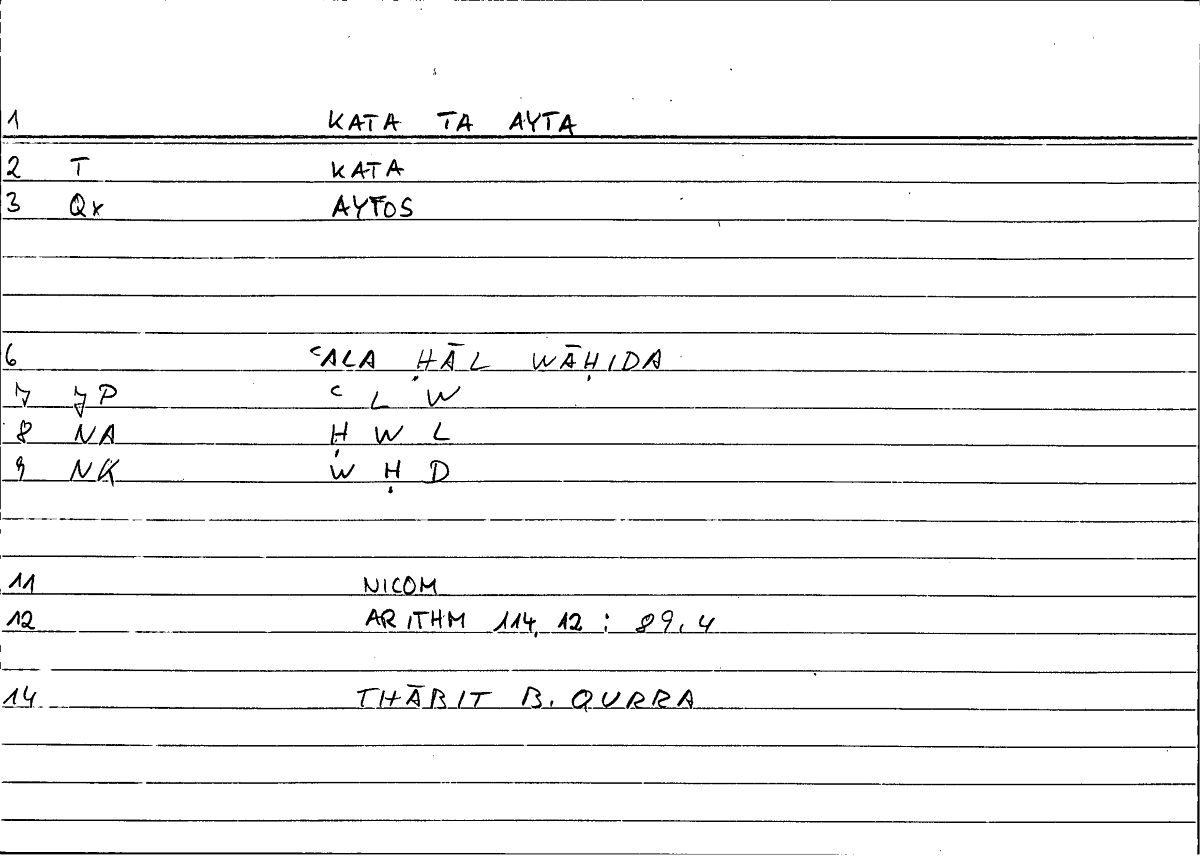 1 KATA TA AYTA
2 T KATA
3 Qx AYTOS
6 ʿALA ḤĀL WĀḤIDA
7 JP ʿ L W
8 NA Ḥ W L
9 NK W Ḥ D
11 NICOM
12 ARITHM 114,12 : 89,4
14 THĀBIT B. QURRA